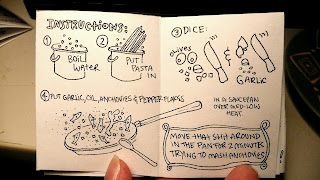 INSTRUCTIONS:
①
BOIL
WATER
②
PUT
PASTA
IN
③ DICE:
OLIVES
&
GARLIC
④ PUT GARLIC, OIL, ANCHOVIES & PEPPER FLAKES
IN A SAUCEPAN
OVER MED-LOW
HEAT.
MOVE THAT SHH AROUND
IN THE PAN FOR 2 MINUTES
TRYING TO MASH ANCHOVIES